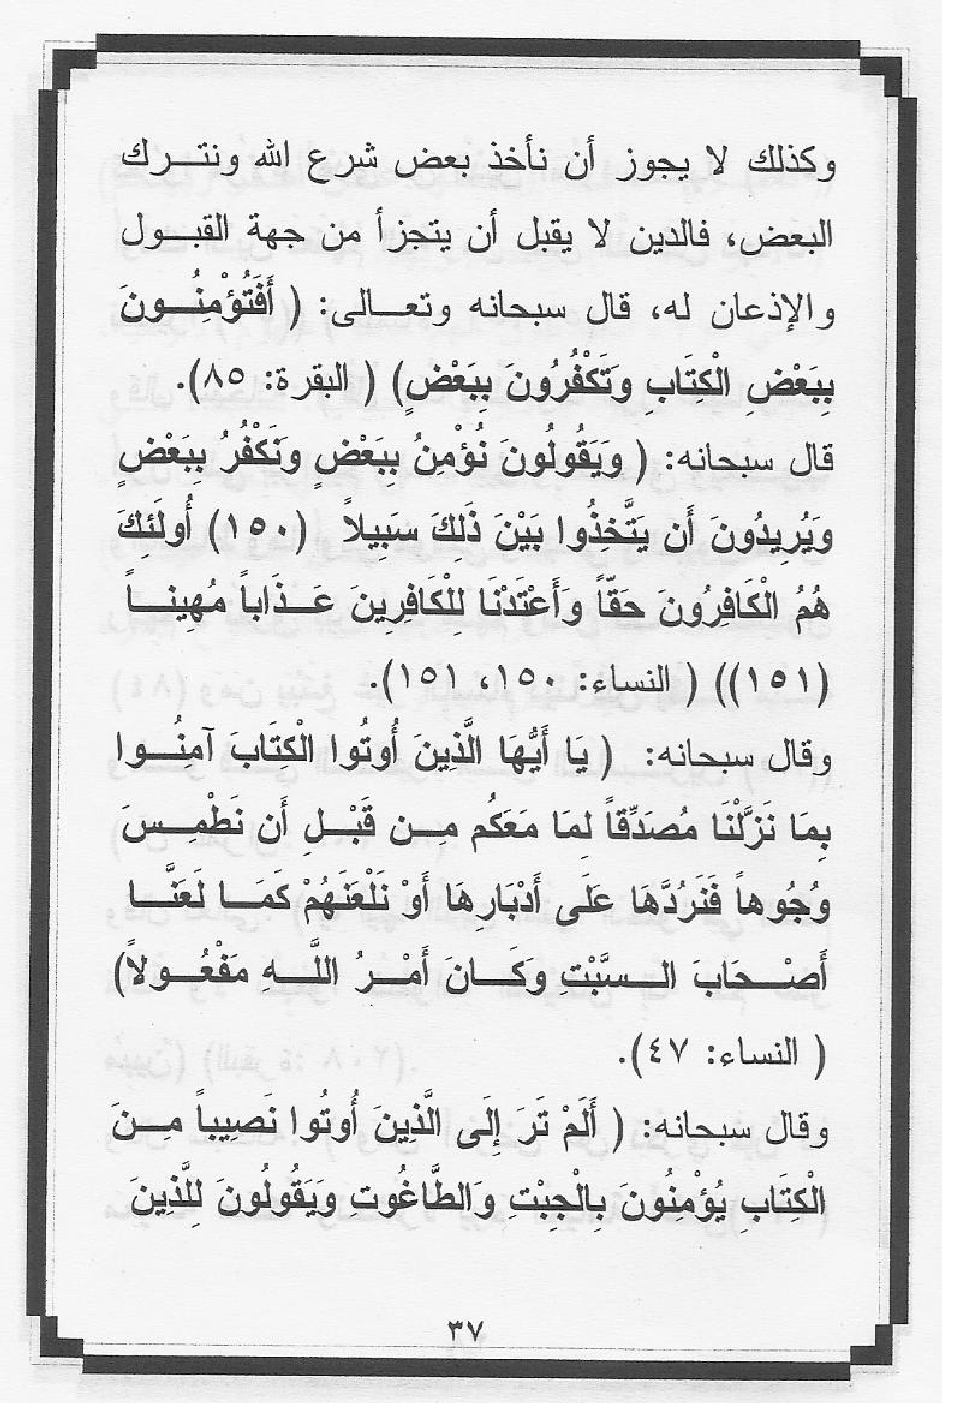 وكذلك لا يجوز أن نأخذ بعض شرع الله ونتـــرك
البعض، فالدين لا يقبل أن يتجزأ من جهة القبــول
والإذعان له، قال سبحانه وتعــالى: ( أَفَتُؤْمِنُــونَ
بِبَعْضِ الْكِتَابِ وَتَكْفُرُونَ بِبَعْضٍ) ( البقرة: ٨٥).
قال سبحانه: ( وَيَقُولُونَ نُؤْمِنُ بِبَعْضٍ وَنَكْفُرُ بِبَعْضٍ
وَيُرِيدُونَ أَن يَتَّخِذُوا بَيْنَ ذَلِكَ سَبِيلاً (١٥٠) أُولَئِكَ
هُمُ الْكَافِرُونَ حَقّاً وَأَعْتَدْنَا لِلْكَافِرِينَ عَــذَاباً مُهِينــاً
(١٥١)) ( النساء: ١٥٠، ١٥١).
وقال سبحانه: ( يَا أَيُّهَا الَّذِينَ أُوتُوا الْكِتَابَ آمِنُــوا
بِمَا نَزَّلْنَا مُصَدِّقاً لِمَا مَعَكُم مِــن قَبْــلِ أَن نَطْمِــسَ
وُجُوهاً فَنَرُدَّهَا عَلَى أَدْبَارِهَا أَوْ نَلْعَنَهُمْ كَمَــا لَعَنَّــا
أَصْــحَابَ الــسَّبْتِ وَكَــانَ أَمْــرُ اللَّــهِ مَفْعُــولاً)
( النساء: ٤٧).
وقال سبحانه: ( أَلَمْ تَرَ إِلَى الَّذِينَ أُوتُوا نَصِيباً مِــنَ
الْكِتَابِ يُؤْمِنُونَ بِالْجِبْتِ وَالطَّاغُوتِ وَيَقُولُونَ لِلَّذِينَ
٣٧